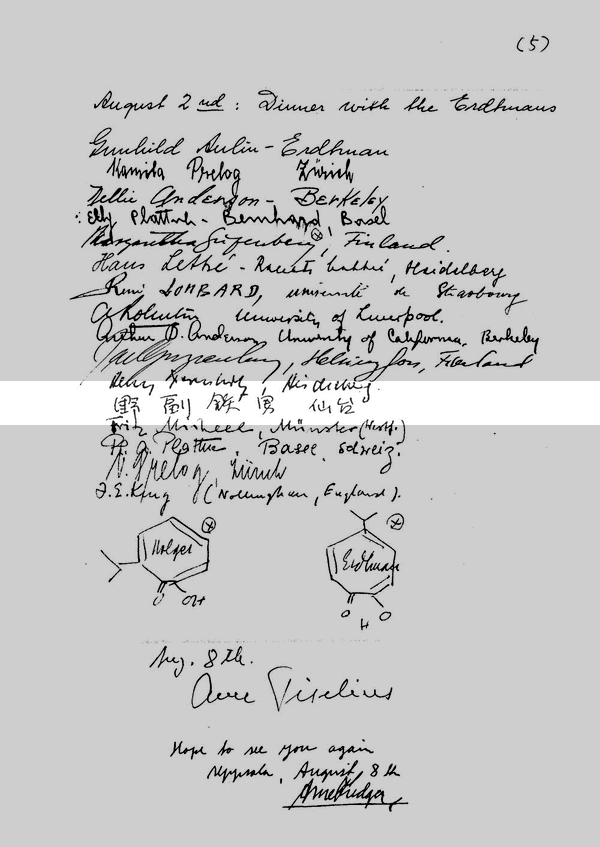 (5)
August 2nd: Dinner with the Erdtmans
Gunhild Aulin-Erdtman
Kamila Prelog Zürich
Nellie Anderson - Berkeley
Elly Plattner - Bernhard, Basel
Margaretha Gripenberg, Finland.
Hans Lettré - Renate Lettré, Heidelberg
René LOMBARD, université de Strasbourg
University of Liverpool.
Arthur D. Anderson University of California. Berkeley
Gripenberg, Helsingfors, Finland
Heidelberg
野副 鉄男 仙台
Fritz Micheel, Münster (Westf.)
Pl. A. Plattner, Basel, Schweiz.
V. Prelog, Zürich
F.E. King (Nottingham, England).
Holger
O OH
Erdtman
O O
H
Aug. 8th.
Arne Tiselius
Hope to see you again
Uppsala, August 8th
Arne Fredga